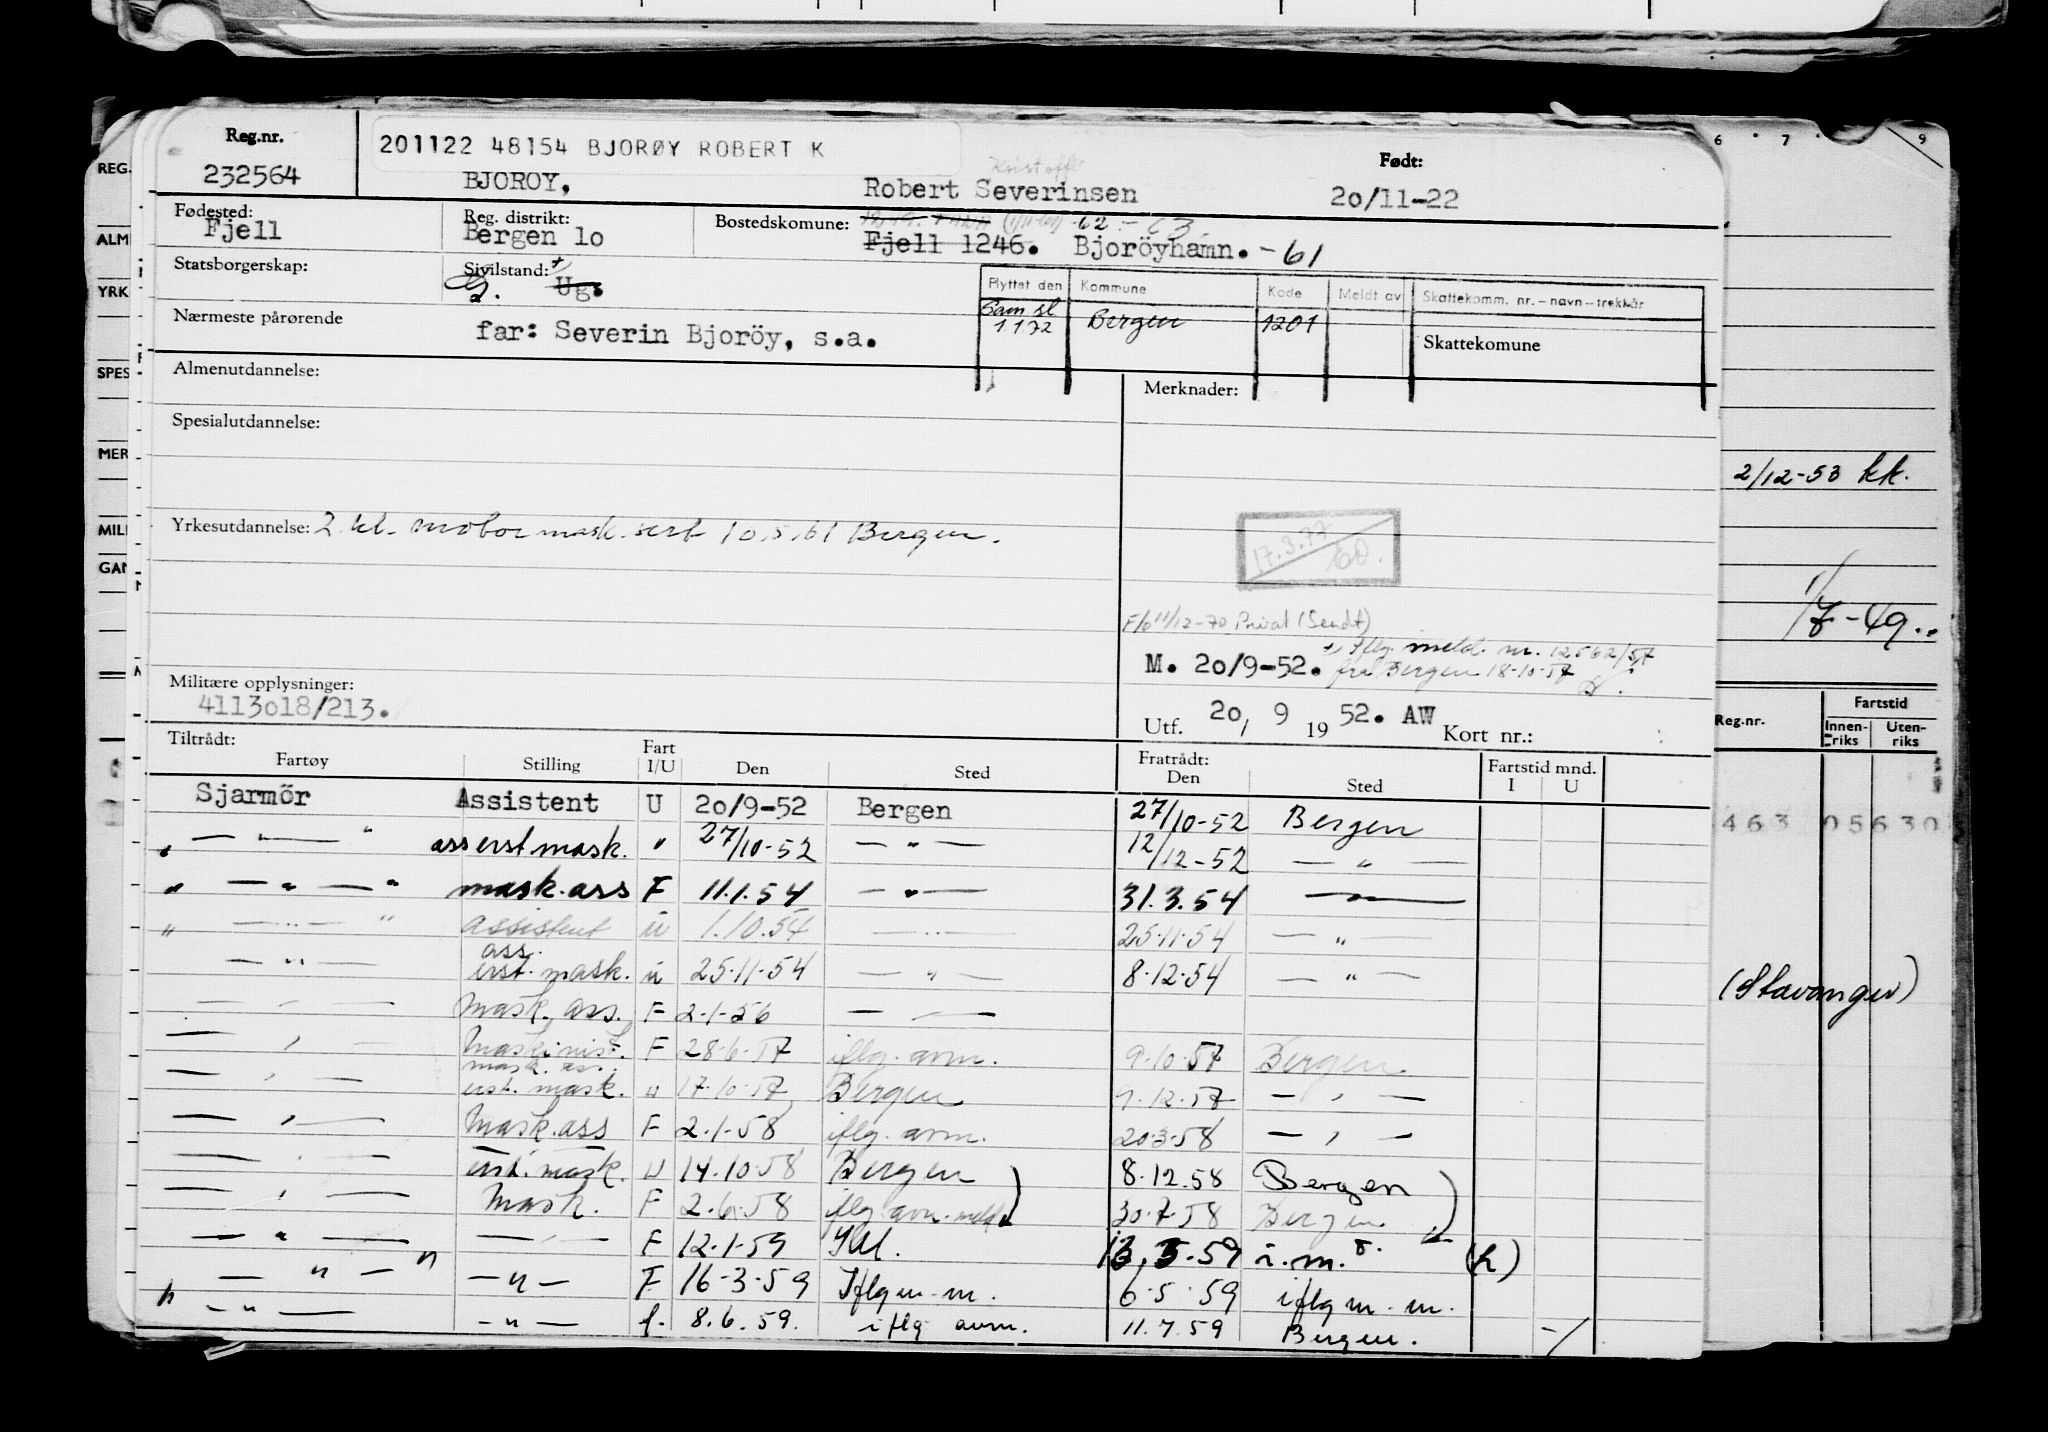 Reg.nr.
232564
201122 48154 BJORØY ROBERT K
BJOROY,
Kristoffer
Robert Severinsen
Født:
20/11-22
Fødested:
Fjell
Reg. distrikt:
Bergen 1o
Bostedskomune:
-62 -63
Fjell 1246. Bjoröyhamn. -61
Statsborgerskap:
Sivilstand: +
G. Ug.
Flyttet den Kommune Kode Meldt av Skattekomm. nr. – navn – trekkår
Sam sl
1 1 72 Bergen 1201
Skattekomune
Nærmeste pårørende
far: Severin Bjoröy, s.a.
Almenutdannelse:
Merknader:
Spesialutdannelse:
Yrkesutdannelse: 2. kl. motor mask. sert 10.5.61 Bergen.
17.3.77
60.
F/b 11/12-70 Privat (Sendt)
+) Iflg. meld. nr. 12562/57
M. 20/9-52. fra Bergen 18-10-57
Militære opplysninger:
4113o18/213.
Utf. 20, 9 19 52. AW Kort nr.:
Tiltrådt:
Fratrådt:
Fartøy Stilling Fart I/U Den Sted Den Sted Fartstid mnd. I U
Sjarmör Assistent U 20/9-52 Bergen 27/10-52 Bergen
" — " — " ass erst mask. " 27/10-52 — " — 12/12-52 — " —
" — " — " mask. ass F 11.1.54 — " — 31.3.54 — " —
" — " — " assistent u 1.10.54 — " — 25.11.54 — " —
— " — ass. erst. mask. u 25.11.54 — " — 8.12.54 — " —
— " — Mask. ass. F 2-1-56 — " —
— " — Maskinist. F 28-6-57 iflg. avm. 9-10-57 Bergen
— " — mask. ass. erst. mask. u 17-10-57 Bergen 9-12-57 — " —
— " — Mask. ass F 2-1-58 iflg. avm. 20-3-58 — " —
— " — erst. mask. u 14-10-58 Bergen 8.12.58 Bergen
— " — Mask. F 2.6.58 iflg avm. meld 30-7-58 Bergen
— " — — " — F 12-1-59 13.3.59 i.m. (h)
— " — " — " — F 16-3-59 Iflg m. m. 6-5-59 iflg m. m.
" — " — — " — f. 8.6.59. iflg avm. 11.7.59 Bergen.
REG.
ALM
YRK
SPES
MER
MILI
GAN
6 7 9
2/12-53 kk.
1/7-49..
Reg.nr.
Fartstid
Innen-
riks
Uten-
riks
463 05630
(Stavanger)